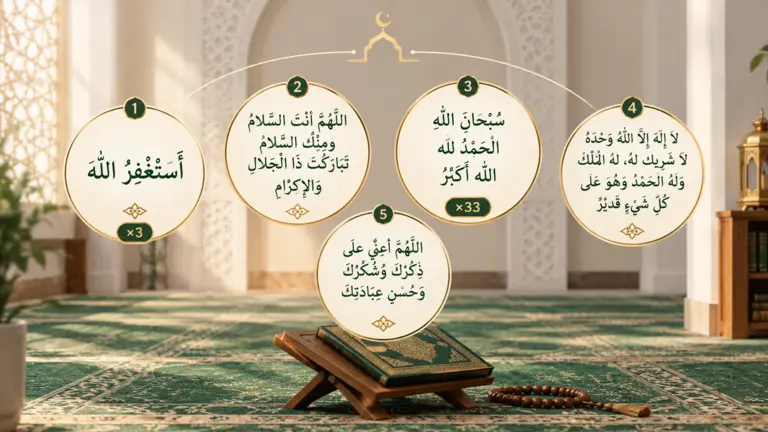 1
أَسْتَغْفِرُ اللهَ
×3
2
اللَّهُمَّ أَنْتَ السَّلَامُ
ومِنْكَ السَّلَامُ
تَبَارَكْتَ ذَا الْجَلَالِ
وَالإِكْرَامِ
3
سُبْحَانَ اللهِ
الْحَمْدُ لله
الله أَكْبَرُ
×33
4
لاَ إِلَهَ إِلاَّ اللهُ وَحْدَهُ
لاَ شَرِيكَ لهُ، لهُ المُلْكُ
وَلَهُ الحَمْدُ وَهُوَ عَلَى
كُلِّ شَيْءٍ قَدِيْرٌ
5
اللَّهُمَّ أَعِنِّي عَلَى
ذِكْرِكَ وَشُكْرِكَ
وَحُسْنِ عِبَادَتِكَ